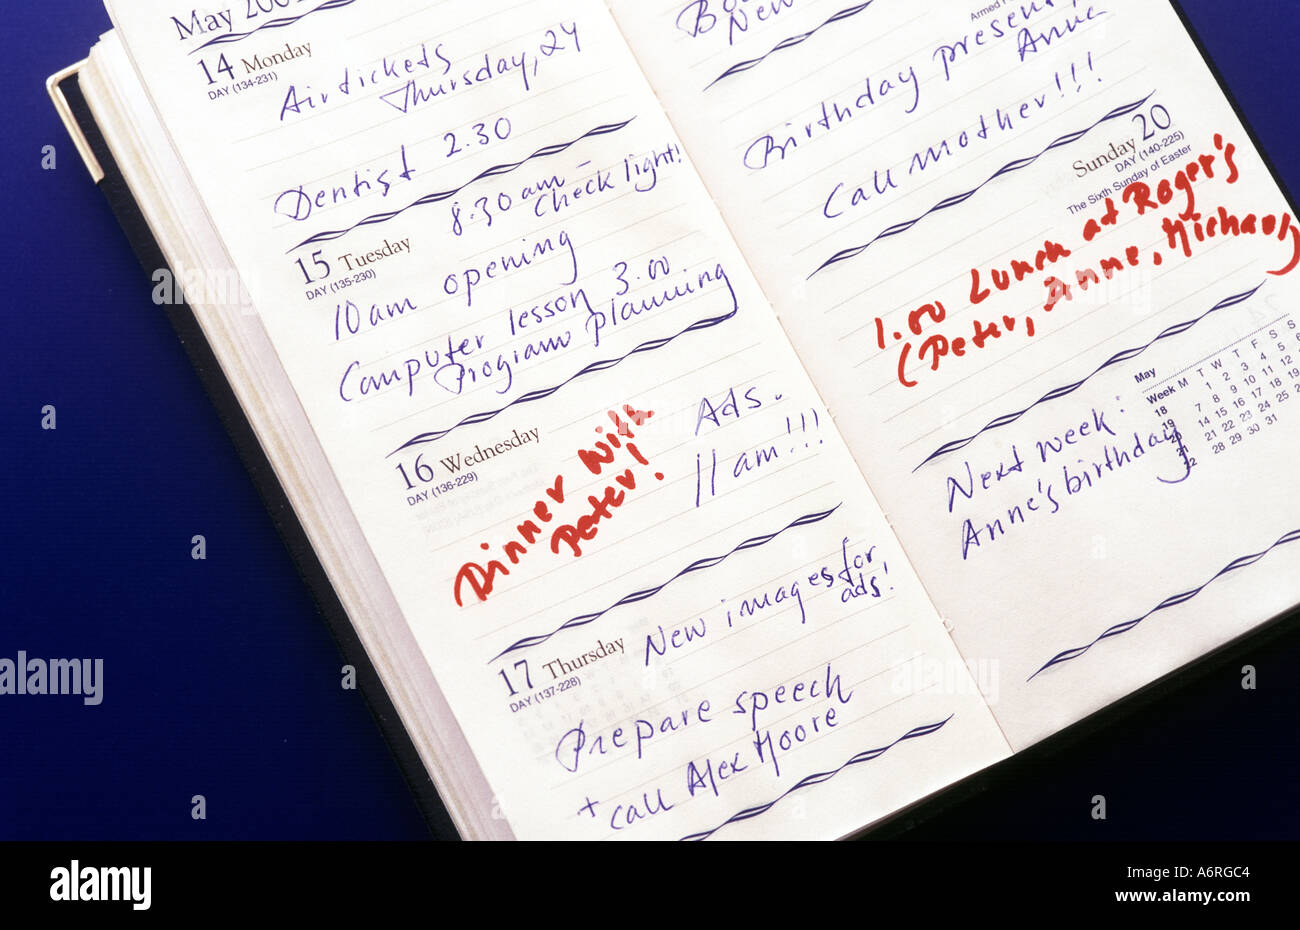 May 2001
14 Monday
DAY (134-231)
Air tickets
Thursday, 24
Dentist 2.30
8.30am –
Check light!
15 Tuesday
DAY (135-230)
10am opening
Computer lesson 3.00
Program planning
16 Wednesday
DAY (136-229)
Dinner with
Peter!
Ads.
11 am!!!
17 Thursday
DAY (137-228)
New images for
ads!
Prepare speech
+ call Alex Moore
New
Armed
Birthday present,
Anne
Call mother!!!
Sunday 20
DAY (140-225)
The Sixth Sunday of Easter
1.00 Lunch at Roger's
(Peter, Anne, Michael)
May
Week M T W T F S S
18 1 2 3 4 5 6
19 7 8 9 10 11 12
20 14 15 16 17 18 19
21 21 22 23 24 25 26
22 28 29 30 31
Next week:
Anne's birthday
alamy
Image ID: A6RGC4
www.alamy.com